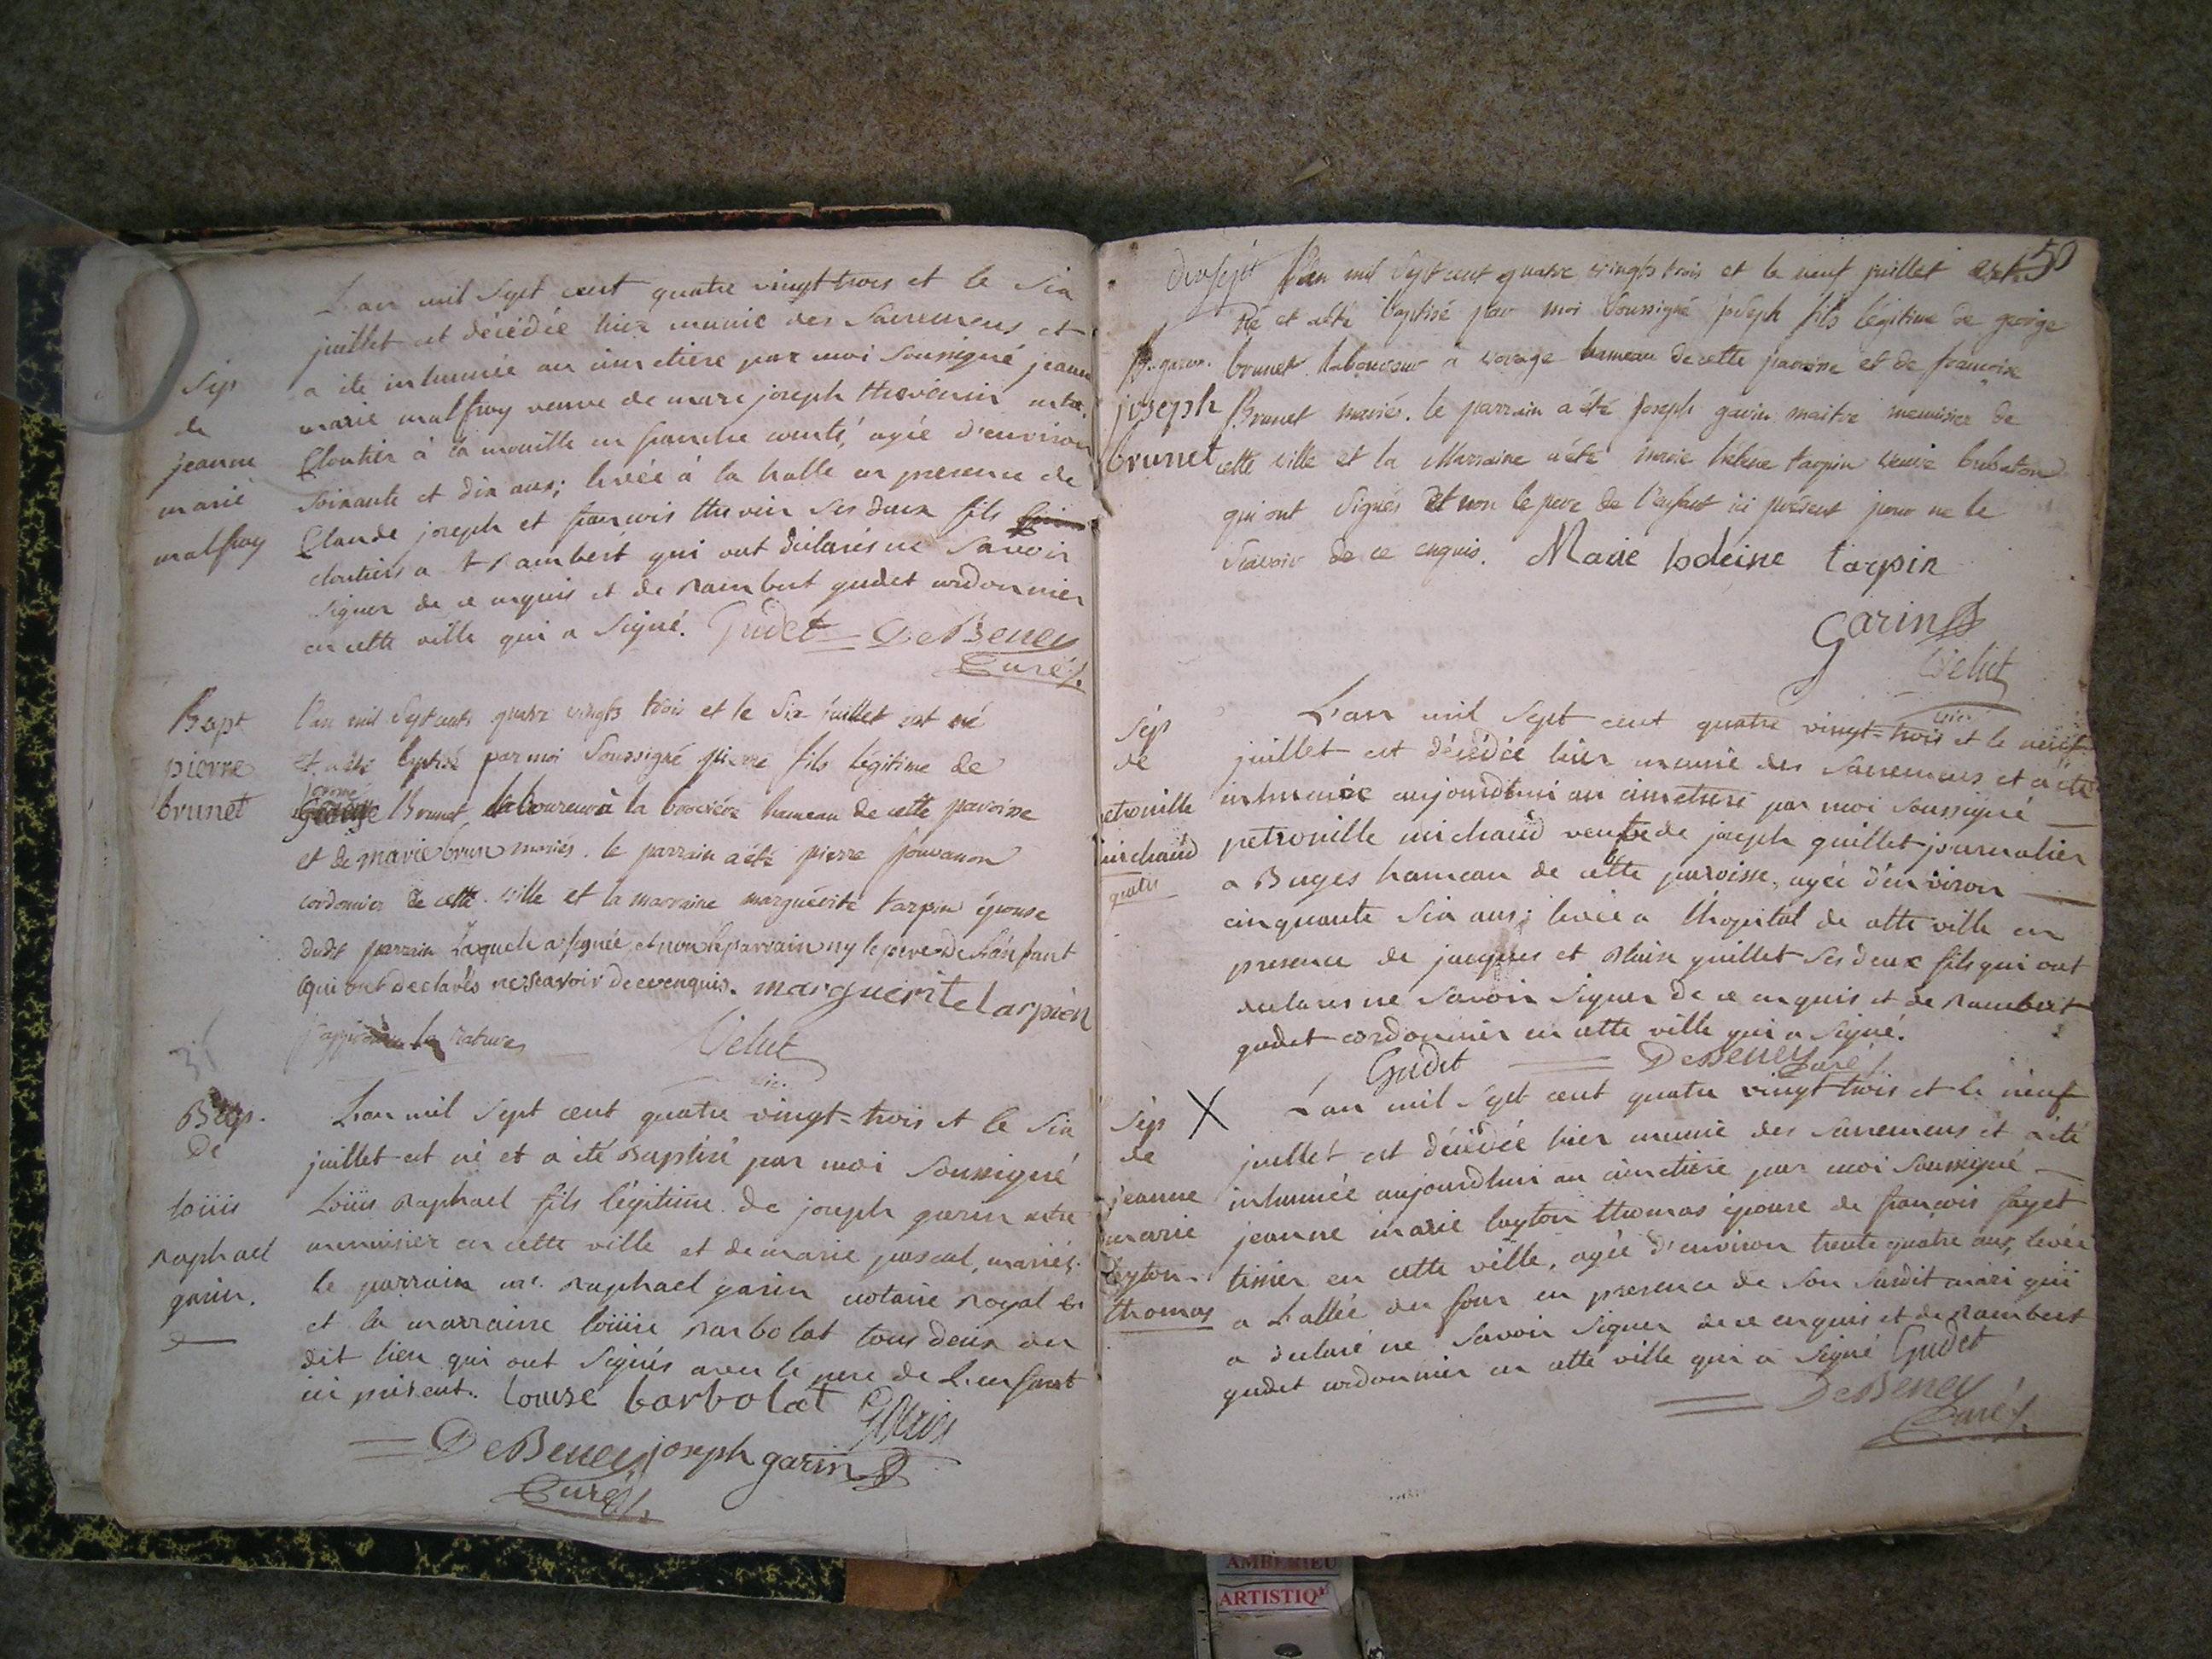 L'an mil sept cent quatre vingt trois et le six
juillet est décédée hier munie des sacremens et
a été inhumée au cimetiere par moi soussigné jeanne
marie malfroy veuve de marc joseph thevenin
Cloutier à la mouille en franche comté, agée d'environ
soixante et dix ans; levée à la halle en presence de
Claude joseph et francois thevenin ses deux fils
cloutiers a St Rambert qui ont déclarés ne savoir
signer de ce enquis et de Rambert gudet cordonnier
en cette ville qui a signé. Gudet DeBeney
Curé
Sép
de
jeanne
marie
malfroy
Bapt
pierre
brunet
l'an mil sept cents quatre vingts trois et le six juillet est né
et a été baptisé par moi soussigné pierre fils légitime de
Brunet laboureur à la hameau de cette paroisse
et de marie brun mariés. le parrain a été pierre
cordonnier de cette ville et la marraine marguérite tarpin épouse
dudit parrain Laquele a signée et non le parrain ny le pere de L'anfant
qui ont declarés ne scavoir de ce enquis. marguerite tarpien
la rature Velut
vic.
Bap.
De
loüis
Raphael
garin.
L'an mil sept cent quatre vingt-trois et le six
juillet est né et a été Baptisé par moi soussigné
Loüis Raphael fils légitime de joseph garin mtre
menuisier en cette ville et de marie pascal, mariés.
le parrain mr. Raphael garin notaire Royal
et la marraine loüise Barbolat tous deux du
dit lieu qui ont signés avec le pere de L'enfant
ici présent. Louise barbolat Garin
DeBeney joseph garin
Curé
50
dixsept L'an mil sept cent quatre vingts trois et le neuf juillet est
né et a été baptisé par moi soussigné joseph fils légitime de george
brunet laboureur à vorage hameau de cette paroisse et de francoise
Brunet mariés. le parrain a été joseph garin maitre menuisier de
cette ville et la Marraine a été marie helene tarpin veuve
qui ont signés et non le pere de l'enfant ici présent pour ne le
scavoir de ce enquis. Marie heleine tarpin
Garin
Velut
vic.
joseph
brunet
Sép
de
petronille
michaud
L'an mil sept cent quatre vingt-trois et le neuf
juillet est décédée hier munie des sacremens et a été
inhumée aujourdhui au cimetiere par moi soussigné
petronille michaud veuve de joseph guillet journalier
a Buges hameau de cette paroisse, agée d'environ
cinquante six ans; levée a l'hopital de cette ville en
presence de jacques et Blaise guillet ses deux fils qui ont
declarés ne savoir signer de ce enquis et de Rambert
gudet cordonnier en cette ville qui a signé.
Gudet DeBeney Curé
Sép X
de
jeanne
marie
Leyton
thomas
L'an mil sept cent quatre vingt trois et le neuf
juillet est décédée hier munie des sacremens et a été
inhumée aujourdhui au cimetiere par moi soussigné
jeanne marie leyton thomas épouse de françois fayet
tissier en cette ville, agée d'environ trente quatre ans, levée
a L'allée du four en presence de son susdit mari qui
a declaré ne savoir signer de ce enquis et de Rambert
gudet cordonnier en cette ville qui a signé Gudet
DeBeney
Curé
AMBERIEU
ARTISTIQ